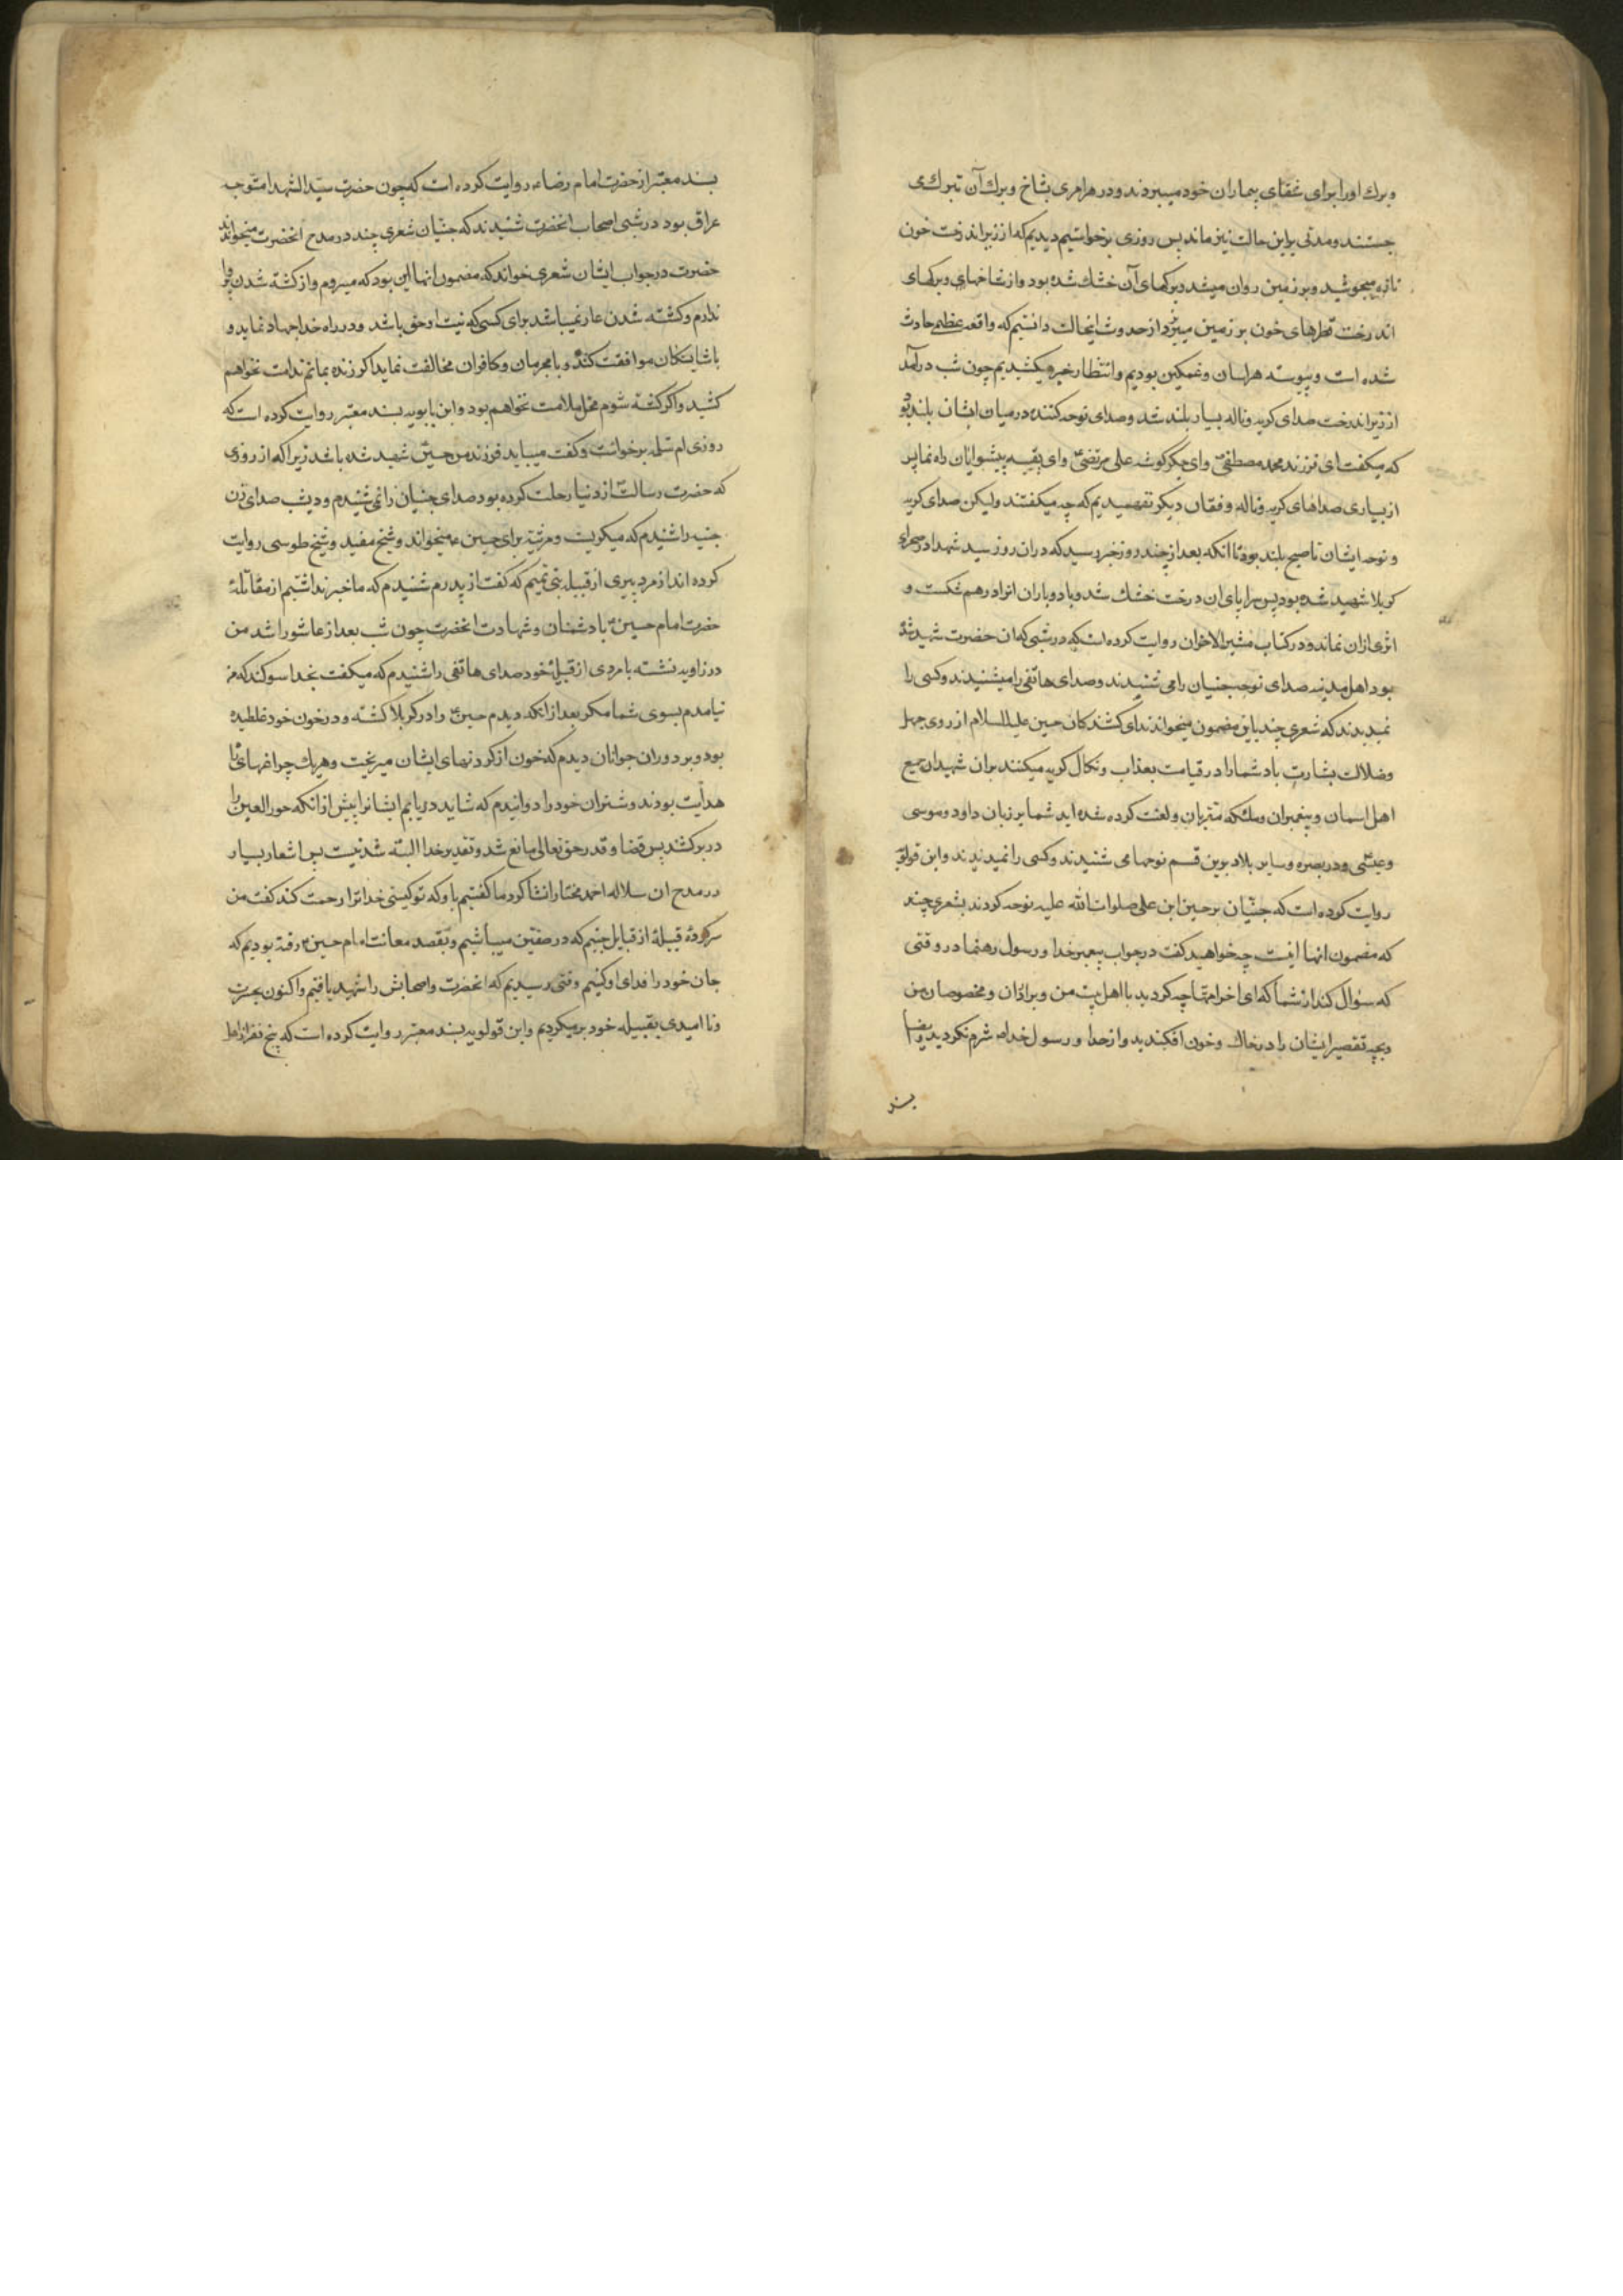 و برك او را براى شفاى بيماران خود ميبردند و در هر امرى بشاخ و برك آن تبرك مى
جستند و مدتى براين حالت نيز ماند پس روزى برخواستيم ديديم كه از زير اندرخت خون
تازه ميجوشيد و بر زمين روان ميشد و بركهاى آن خشك شده بود و از شاخهاى و بركهاى
اندرخت قطرهاى خون بر زمين ميريزد از حدوث اينحالت دانستيم كه واقعه عظيم حادث
شده است و پيوسته هراسان و غمكين بوديم و انتظار خبر ميكشيديم چون شب درآمد
از زير اندرخت صداى كريه و ناله بسيار بلند شد و صداى نوحه كننده در ميان ايشان بلند بود
كه ميكفت اى فرزند محمد مصطفى و اى جكر كوشه على مرتضى و اى بقيه پيشوايان راه نما پس
از بسيارى صداهاى كريه و ناله و فغان ديكر نفهميديم كه چه ميكفتند وليكن صداى كريه
و نوحه ايشان تا صبح بلند بود تا انكه بعد از چند روز خبر رسيد كه دران روز سيد شهدا در صحراى
كربلا شهيد شده بود پس سراپاى ان درخت خشك شد و باد و باران انرا درهم شكست و
اثرى ازان نماند و در كتاب مشير الاحزان روايت كرده است كه در شبى كه ان حضرت شهيد شده
بود اهل مدينه صداى نوحه جنيان را مى شنيدند و صداى هاتفى را ميشنيدند و كسى را
نميديدند كه شعرى چند باين مضمون ميخواندند اى كشندكان حسين عليه السلام از روى جهل
و ضلالت بشارت باد شما را در قيامت بعذاب و نكال كريه ميكنند بران شهيدان جميع
اهل اسمان و پيغمبران و ملئكه مقربان و لعنت كرده شده ايد شما بر زبان داود و موسى
و عيسى و در بصره و ساير بلاد بدين قسم نوحها مى شنيدند و كسى را نميديدند و ابن قولويه
روايت كرده است كه جنيان بر حسين ابن على صلوات الله عليه نوحه كردند بشعرى چند
كه مضمون انها اينست چه خواهيد كفت در جواب پيغمبر خدا و رسول رهنما در وقتى
كه سؤال كند از شما كه اى اخر امتها چه كرديد با اهل بيت من و برادران و مخصوصان من
و بچه تقصير ايشان را در خاك و خون افكنديد و از خدا و رسول خدا شرم نكرديد و ايضا
بسند
بسند معتبر از حضرت امام رضاء روايت كرده است كه چون حضرت سيد الشهدا متوجه
عراق بود در شبى اصحاب انحضرت شنيدند كه جنيان شعرى چند در مدح انحضرت ميخواندند
حضرت در جواب ايشان شعرى خواند كه مضمون انها اين بود كه ميروم و از كشته شدن پروا
ندارم و كشته شدن عار نميباشد براى كسى كه نيت او حق باشد و در راه خدا جهاد نمايد و
با شايستكان موافقت كند و با مجرمان و كافران مخالفت نمايد اكر زنده بمانم ندامت نخواهم
كشيد و اكر كشته شوم محل ملامت نخواهم بود و ابن بابويه بسند معتبر روايت كرده است كه
روزى ام سلمه برخواست و كفت ميبايد فرزند من حسين شهيد شده باشد زيرا كه از روزى
كه حضرت رسالت از دنيا رحلت كرده بود صداى جنيان را نمى شنيدم و ديشب صداى زن
جنيه را شنيدم كه ميكريست و مرثيه براى حسين ع ميخواند و شيخ مفيد و شيخ طوسى روايت
كرده اند از مرد پيرى از قبيله بنى تميم كه كفت از پدرم شنيدم كه ما خبر نداشتيم از مقاتله
حضرت امام حسين با دشمنان و شهادت انحضرت چون شب بعد از عاشورا شد من
در زاويه نشسته با مردى از قبيله خود صداى هاتفى را شنيدم كه ميكفت بخدا سوكند كه من
نيامدم بسوى شما مكر بعد از انكه ديدم حسين را در كربلا كشته و در خون خود غلطيده
بود و بر دوران جوانان ديدم كه خون از كردنهاى ايشان ميريخت و هريك چراغهاى
هدايت بودند و شتران خود را دوانيدم كه شايد دريابم ايشانرا پيش از انكه حور العين را
در بر كشد پس قضا و قدر حق تعالى مانع شد و تقدير خدا البته شدنيست پس اشعار بسيار
در مدح ان سلاله احمد مختار انشا كرد ما كفتيم باو كه تو كيستى خدا ترا رحمت كند كفت من
سركردهٔ قبيلهٔ از قبايل جنيم كه در صفين ميباشيم و بقصد معانت امام حسين رفته بوديم كه
جان خود را فداى او كنيم وقتى رسيديم كه انحضرت و اصحابش را شهيد يافتيم و اكنون بحسرت
و نا اميدى بقبيله خود برميكرديم و ابن قولويه بسند معتبر روايت كرده است كه پنج نفر از اهل